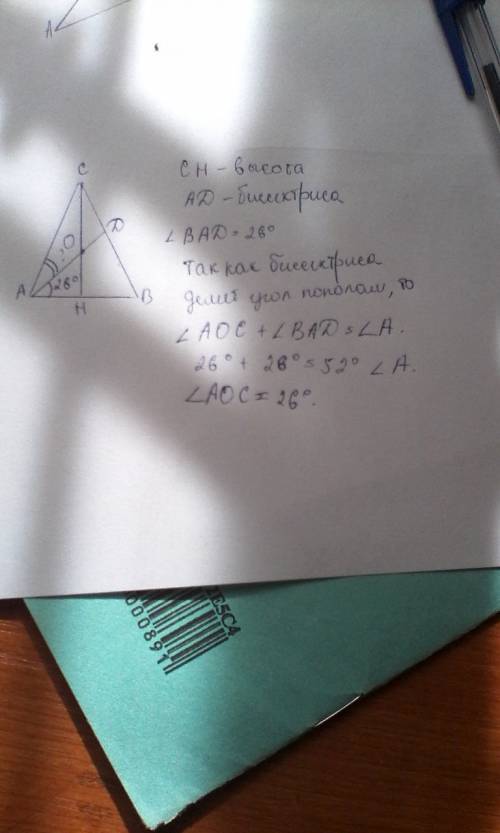 A
C
D
O
26°
A
H
B
CH - высота
AD - биссектриса
∠BAD = 26°
Так как биссектриса
делит угол пополам, то
∠AOC + ∠BAD = ∠A.
26° + 26° = 52° ∠A.
∠AOC = 26°.
E5C4
000891